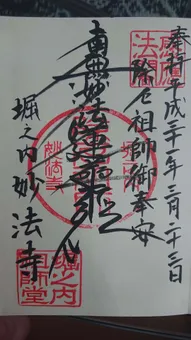 奉拝 平成三十一年三月二十三日
除厄祖師御奉安
南無妙法蓮華経
堀之内妙法寺
妙法寺
堀之内
祖師堂